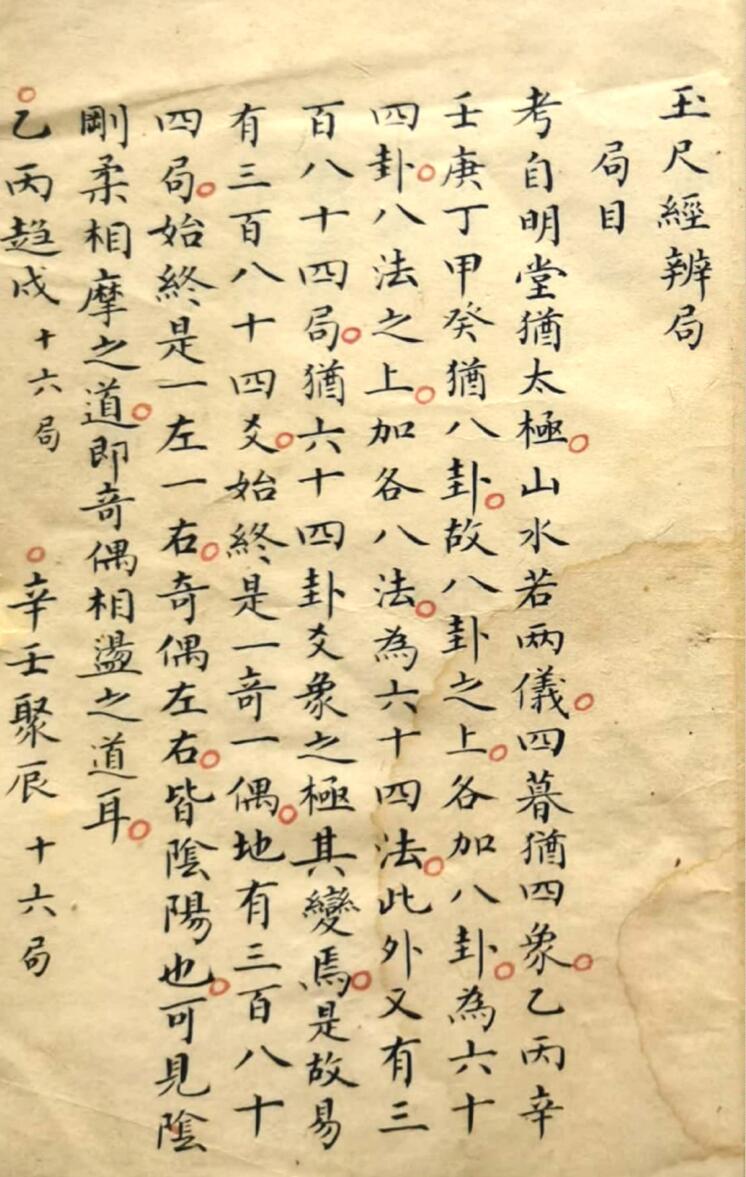 玉尺經辨局
局目
考自明堂猶太極。山水若兩儀。四暮猶四象。乙丙辛
壬庚丁甲癸猶八卦。故八卦之上。各加八卦。為六十
四卦。八法之上。加各八法。為六十四法。此外又有三
百八十四局。猶六十四卦爻象之極其變焉。是故易
有三百八十四爻。始終是一奇一偶。地有三百八十
四局。始終是一左一右。奇偶左右。皆陰陽也。可見陰
剛柔相摩之道。即奇偶相盪之道耳。
。乙丙趋戍十六局 。辛壬聚辰十六局